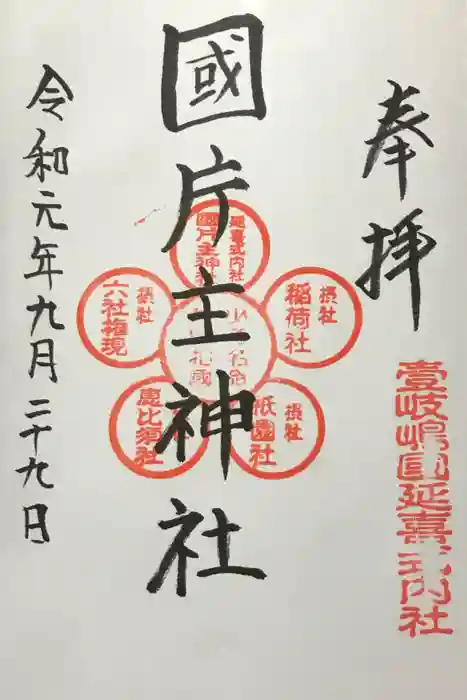 奉拝
壹岐嶋國延喜式内社
國片主神社
延喜式内社
國片主神社
摂社
稲荷社
摂社
祇園社
恵比須社
摂社
六社権現
令和元年九月二十九日